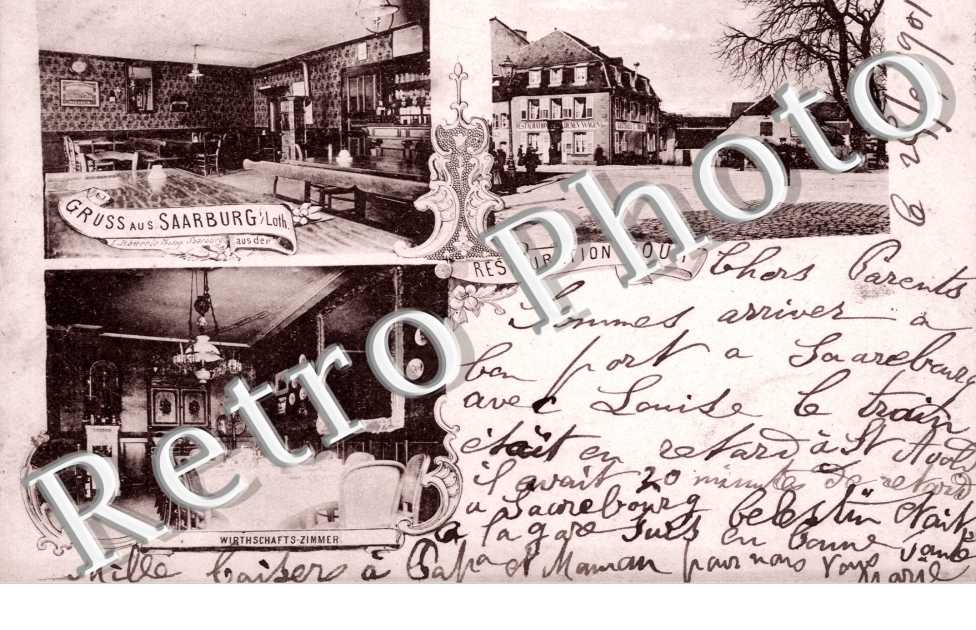 GRUSS AUS SAARBURG i/Loth.
aus der
RESTAURATION
WIRTHSCHAFTS-ZIMMER
Retro Photo
Chers Parents
Sommes arriver a
bon port a Saarebourg
avec Louise le train
était en retard à St Avold
il avait 20 minutes de retard
a Saarebourg Celestin etait
a la gare Suis en bonne Santé
Mille baisers à Papa et Maman pour nous Vous
Marie